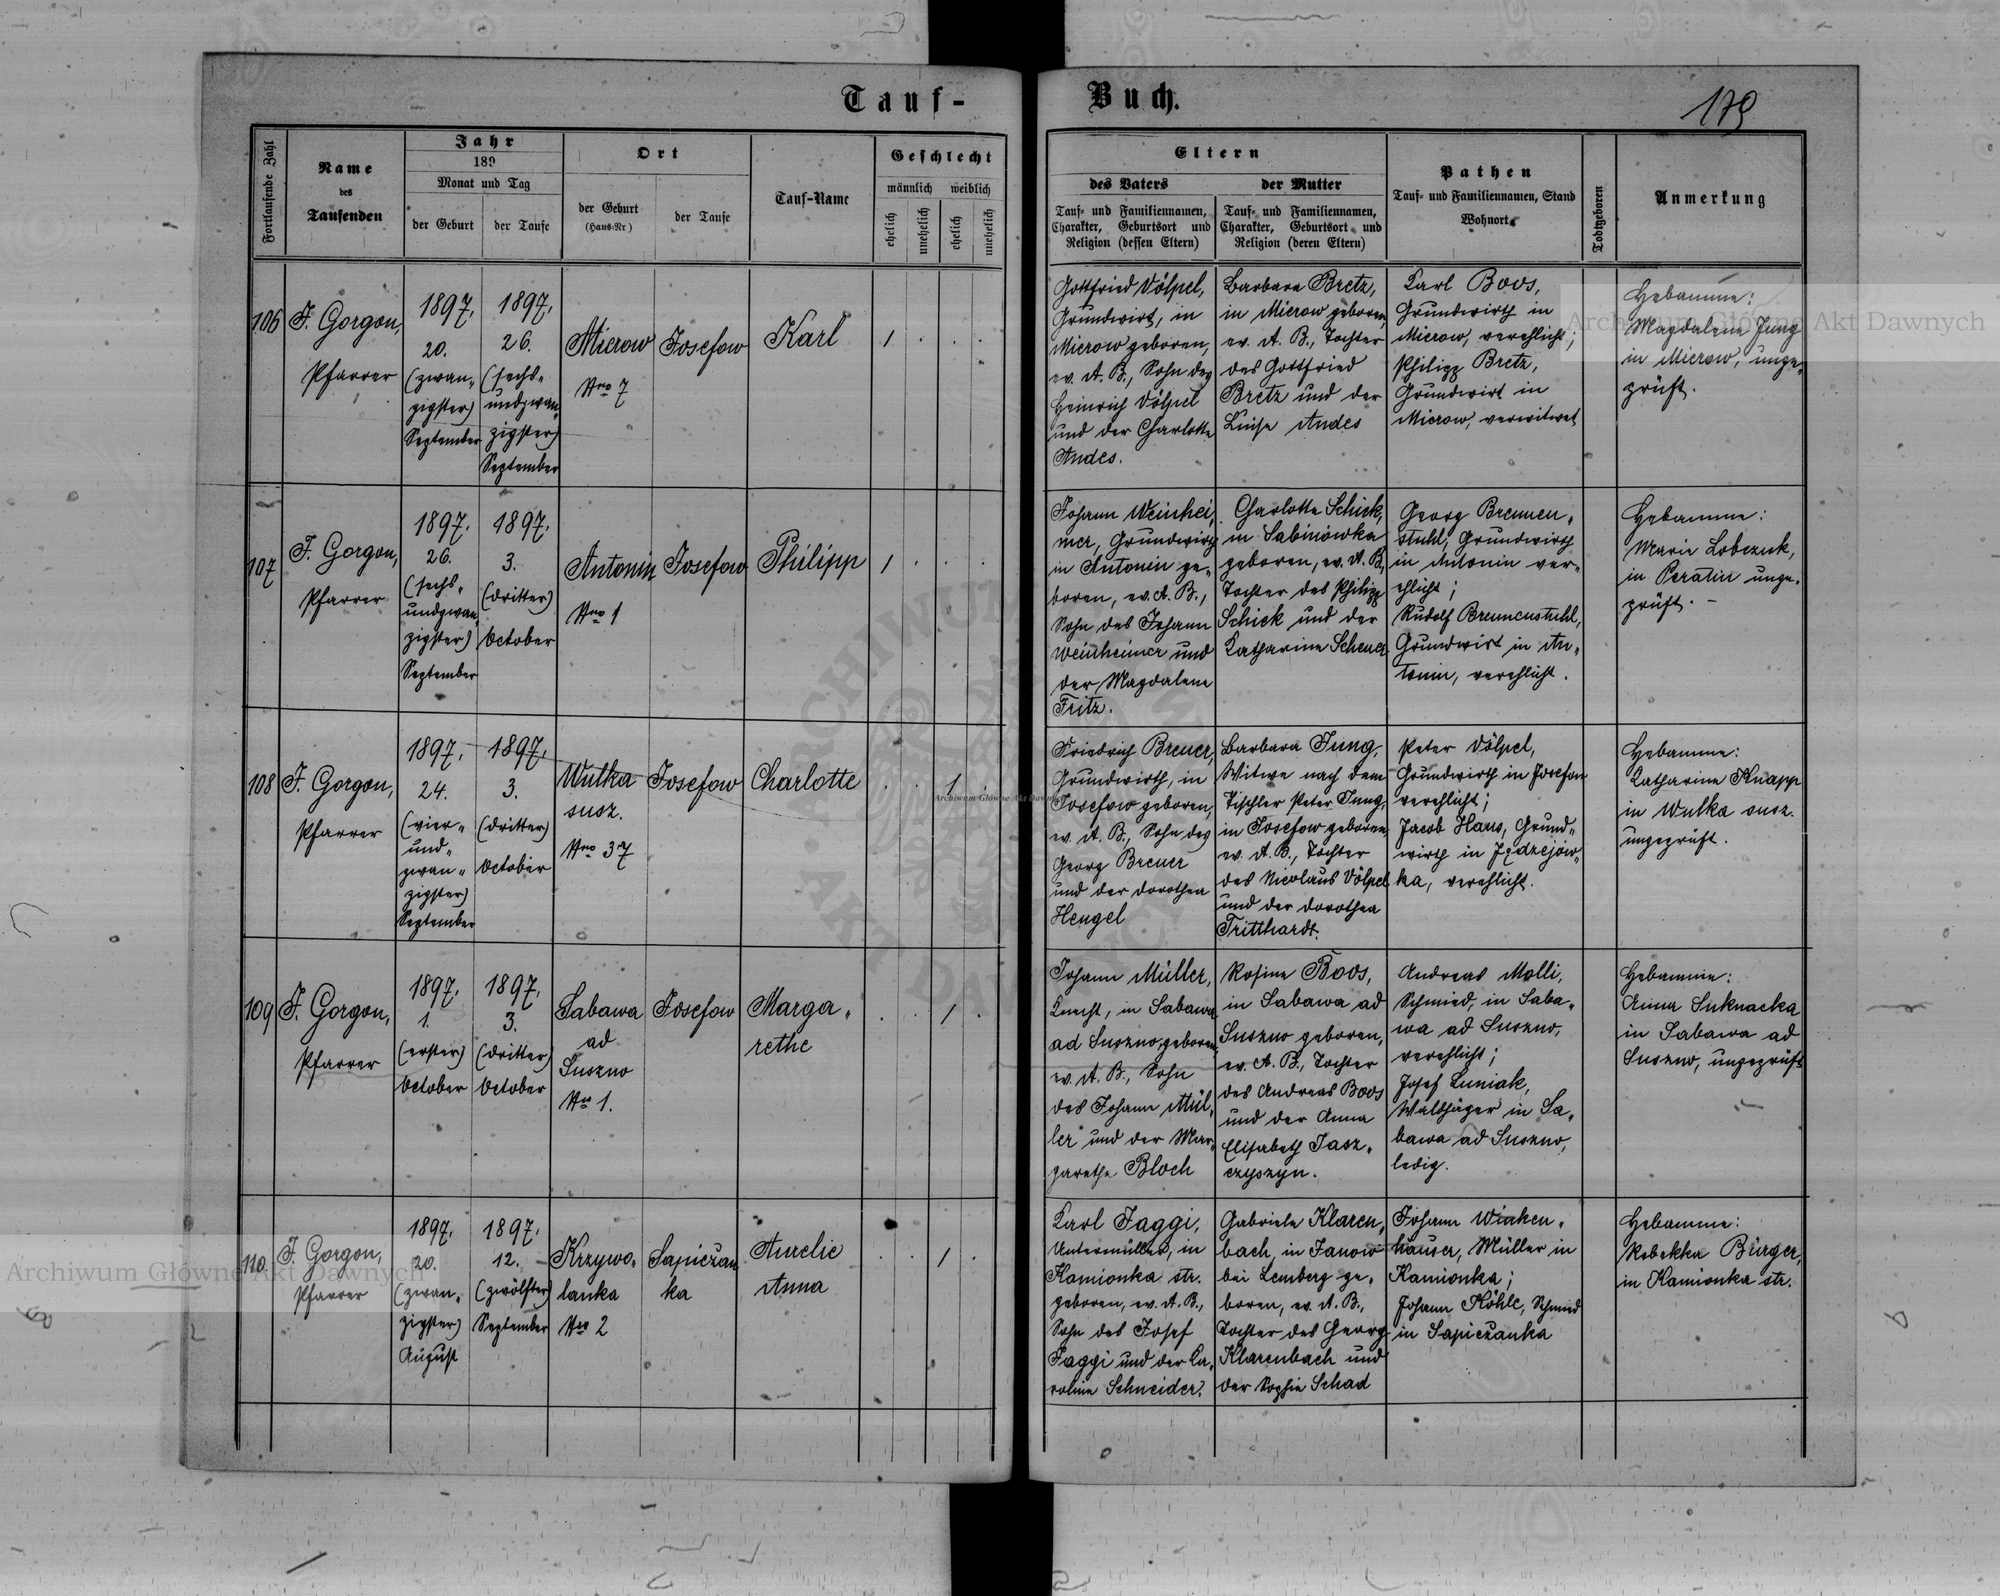 Tauf-
Buch.
179
Fortlaufende Zahl
Name
des
Taufenden
Jahr
189
Monat und Tag
der Geburt
der Taufe
Ort
der Geburt
(Haus-Nr)
der Taufe
Tauf-Name
Geschlecht
männlich
weiblich
ehelich
unehelich
ehelich
unehelich
Eltern
des Vaters
Tauf- und Familiennamen,
Charakter, Geburtsort und
Religion (dessen Eltern)
der Mutter
Tauf- und Familiennamen,
Charakter, Geburtsort und
Religion (deren Eltern)
Pathen
Tauf- und Familiennamen, Stand
Wohnort
Todtgeboren
Anmerkung
106
F. Gorgon,
Pfarrer
1897.
20.
(zwan-
zigster)
September
1897.
26.
(sechs-
undzwan-
zigster)
September
Mierow
Nro 7
Josefow
Karl
1 . . .
Gottfried Völpel,
Grundwirt, in
Mierow geboren,
ev. A. B., Sohn des
Heinrich Völpel
und der Charlotte
Andes.
Barbara Bretz,
in Mierow geboren,
ev. A. B., Tochter
des Gottfried
Bretz und der
Luise Andes
Karl Boos,
Grundwirth in
Mierow, verehlicht;
Philipp Bretz,
Grundwirt in
Mierow, verwitwet
Hebamme:
Magdalena Jung
in Mierow, unge-
prüft.
107
F. Gorgon,
Pfarrer
1897.
26.
(sechs-
undzwan-
zigster)
September
1897.
3.
(dritter)
October
Antonin
Nro 1
Josefow
Philipp
1 . . .
Johann Weinhei-
mer, Grundwirth
in Antonin ge-
boren, ev. A. B.,
Sohn des Johann
Weinheimer und
der Magdalena
Fritz.
Charlotte Schick,
in Sabinówka
geboren, ev. A. B,
Tochter des Philipp
Schick und der
Katharina Scheuer
Georg Brennen-
stuhl, Grundwirth
in Antonin ver-
ehlicht;
Rudolf Brennenstuhl,
Grundwirt in An-
tonin, verehlicht.
Hebamme:
Marie Lobczuk,
in Peratin unge-
prüft. -
108
F. Gorgon,
Pfarrer
1897.
24.
(vier-
und-
zwan-
zigster)
September
1897.
3.
(dritter)
October
Wulka
susz.
Nro 37
Josefow
Charlotte
. . 1 .
Friedrich Breuer,
Grundwirth, in
Josefow geboren,
ev. A. B., Sohn des
Georg Breuer
und der Dorothea
Hengel
Barbara Jung,
Witwe nach dem
Tischler Peter Jung,
in Josefow geboren
ev. A. B., Tochter
des Nicolaus Völpel
und der Dorothea
Tritthardt.
Peter Völpel,
Grundwirth in Josefow
verehlicht;
Jacob Haus, Grund-
wirth in Jędrzejów-
ka, verehlicht.
Hebamme:
Katharina Knapp
in Wulka susz.
ungeprüft.
109
F. Gorgon,
Pfarrer
1897.
1.
(erster)
October
1897.
3.
(dritter)
October
Sabawa
ad
Suszno
Nro 1.
Josefow
Marga-
rethe
. . 1 .
Johann Müller,
Knecht, in Sabawa
ad Suszno geboren,
ev. A. B., Sohn
des Johann Mül-
ler und der Mar-
garethe Bloch
Rosina Boos,
in Sabawa ad
Suszno geboren,
ev. A. B., Tochter
des Andreas Boos
und der Anna
Elisabeth Jasz-
czyszyn.
Andreas Molli,
Schmied, in Saba-
wa ad Suszno,
verehlicht;
Josef Luniak,
Waldjäger in Sa-
bawa ad Suszno,
ledig.
Hebamme:
Anna Suknacka
in Sabawa ad
Suszno, ungeprüft
110.
F. Gorgon,
Pfarrer
1897.
20.
(zwan-
zigster)
August
1897.
12.
(zwölfter)
September
Krzywo-
lanka
Nro 2
Sapieżan
ka
Aurelie
Anna
. . 1 .
Karl Jaggi,
Untermüller, in
Kamionka str.
geboren, ev. A. B.,
Sohn des Josef
Jaggi und der Ka-
roline Schneider.
Gabriele Klaren-
bach, in Janow
bei Lemberg ge-
boren, ev. A. B.,
Tochter des Georg
Klarenbach und
der Sophie Schad
Johann Winken-
häuser, Müller in
Kamionka;
Johann Höhle, Schmied
in Sapieżanka
Hebamme:
Rebekka Bürger,
in Kamionka str.
Archiwum Główne Akt Dawnych
Archiwum Główne Akt Dawnych
Archiwum Główne Akt Dawnych